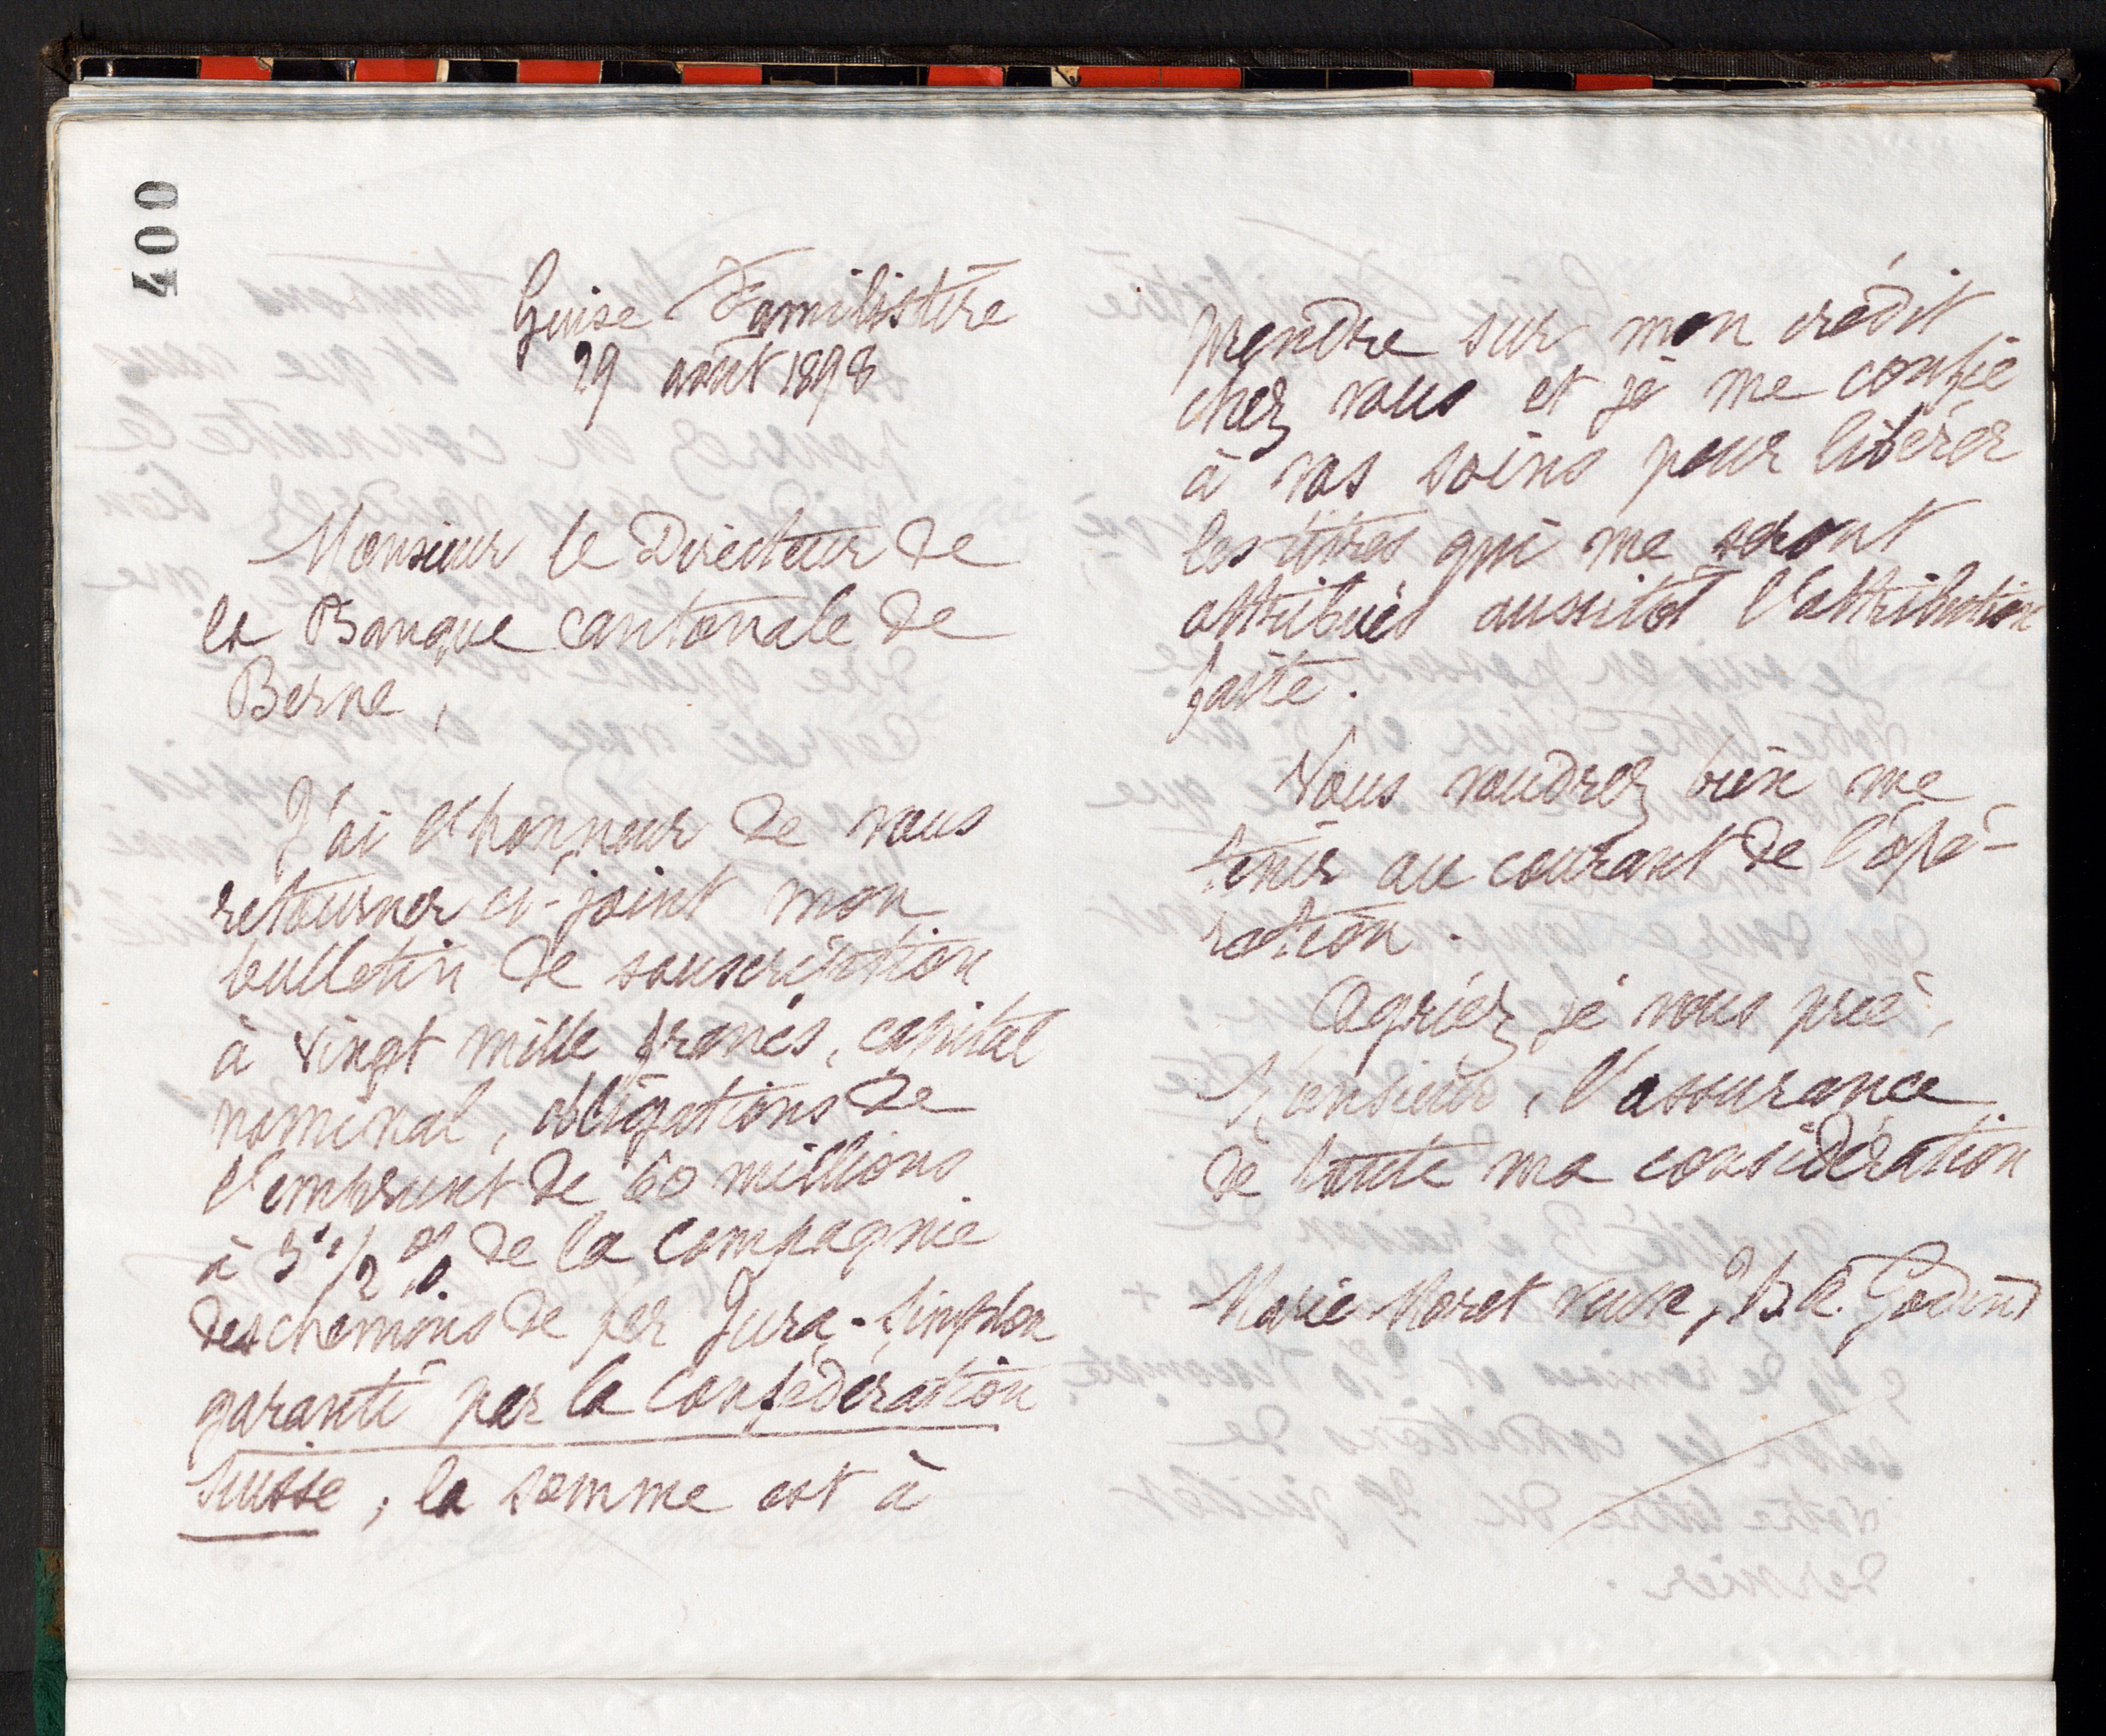 400
Guise Familistère
29 août 1898
Monsieur le Directeur de
la Banque cantonale de
Berne,
J'ai l'honneur de vous
retourner ci-joint mon
bulletin de souscription
à vingt mille francs, capital
nominal, obligations de
l'emprunt de 60 millions
à 3 1/2 % de la compagnie
des chemins de fer Jura-Simplon
garanti par la Confédération
Suisse ; la somme est à
prendre sur mon crédit
chez vous et je me confie
à vos soins pour libérer
les titres qui me seront
attribués aussitôt l'attribution
faite.
Vous voudrez bien me
tenir au courant de l'opé-
ration.
Agréez, je vous prie,
Monsieur, l'assurance
de toute ma considération
Marie Moret veuve J. B. A. Godin